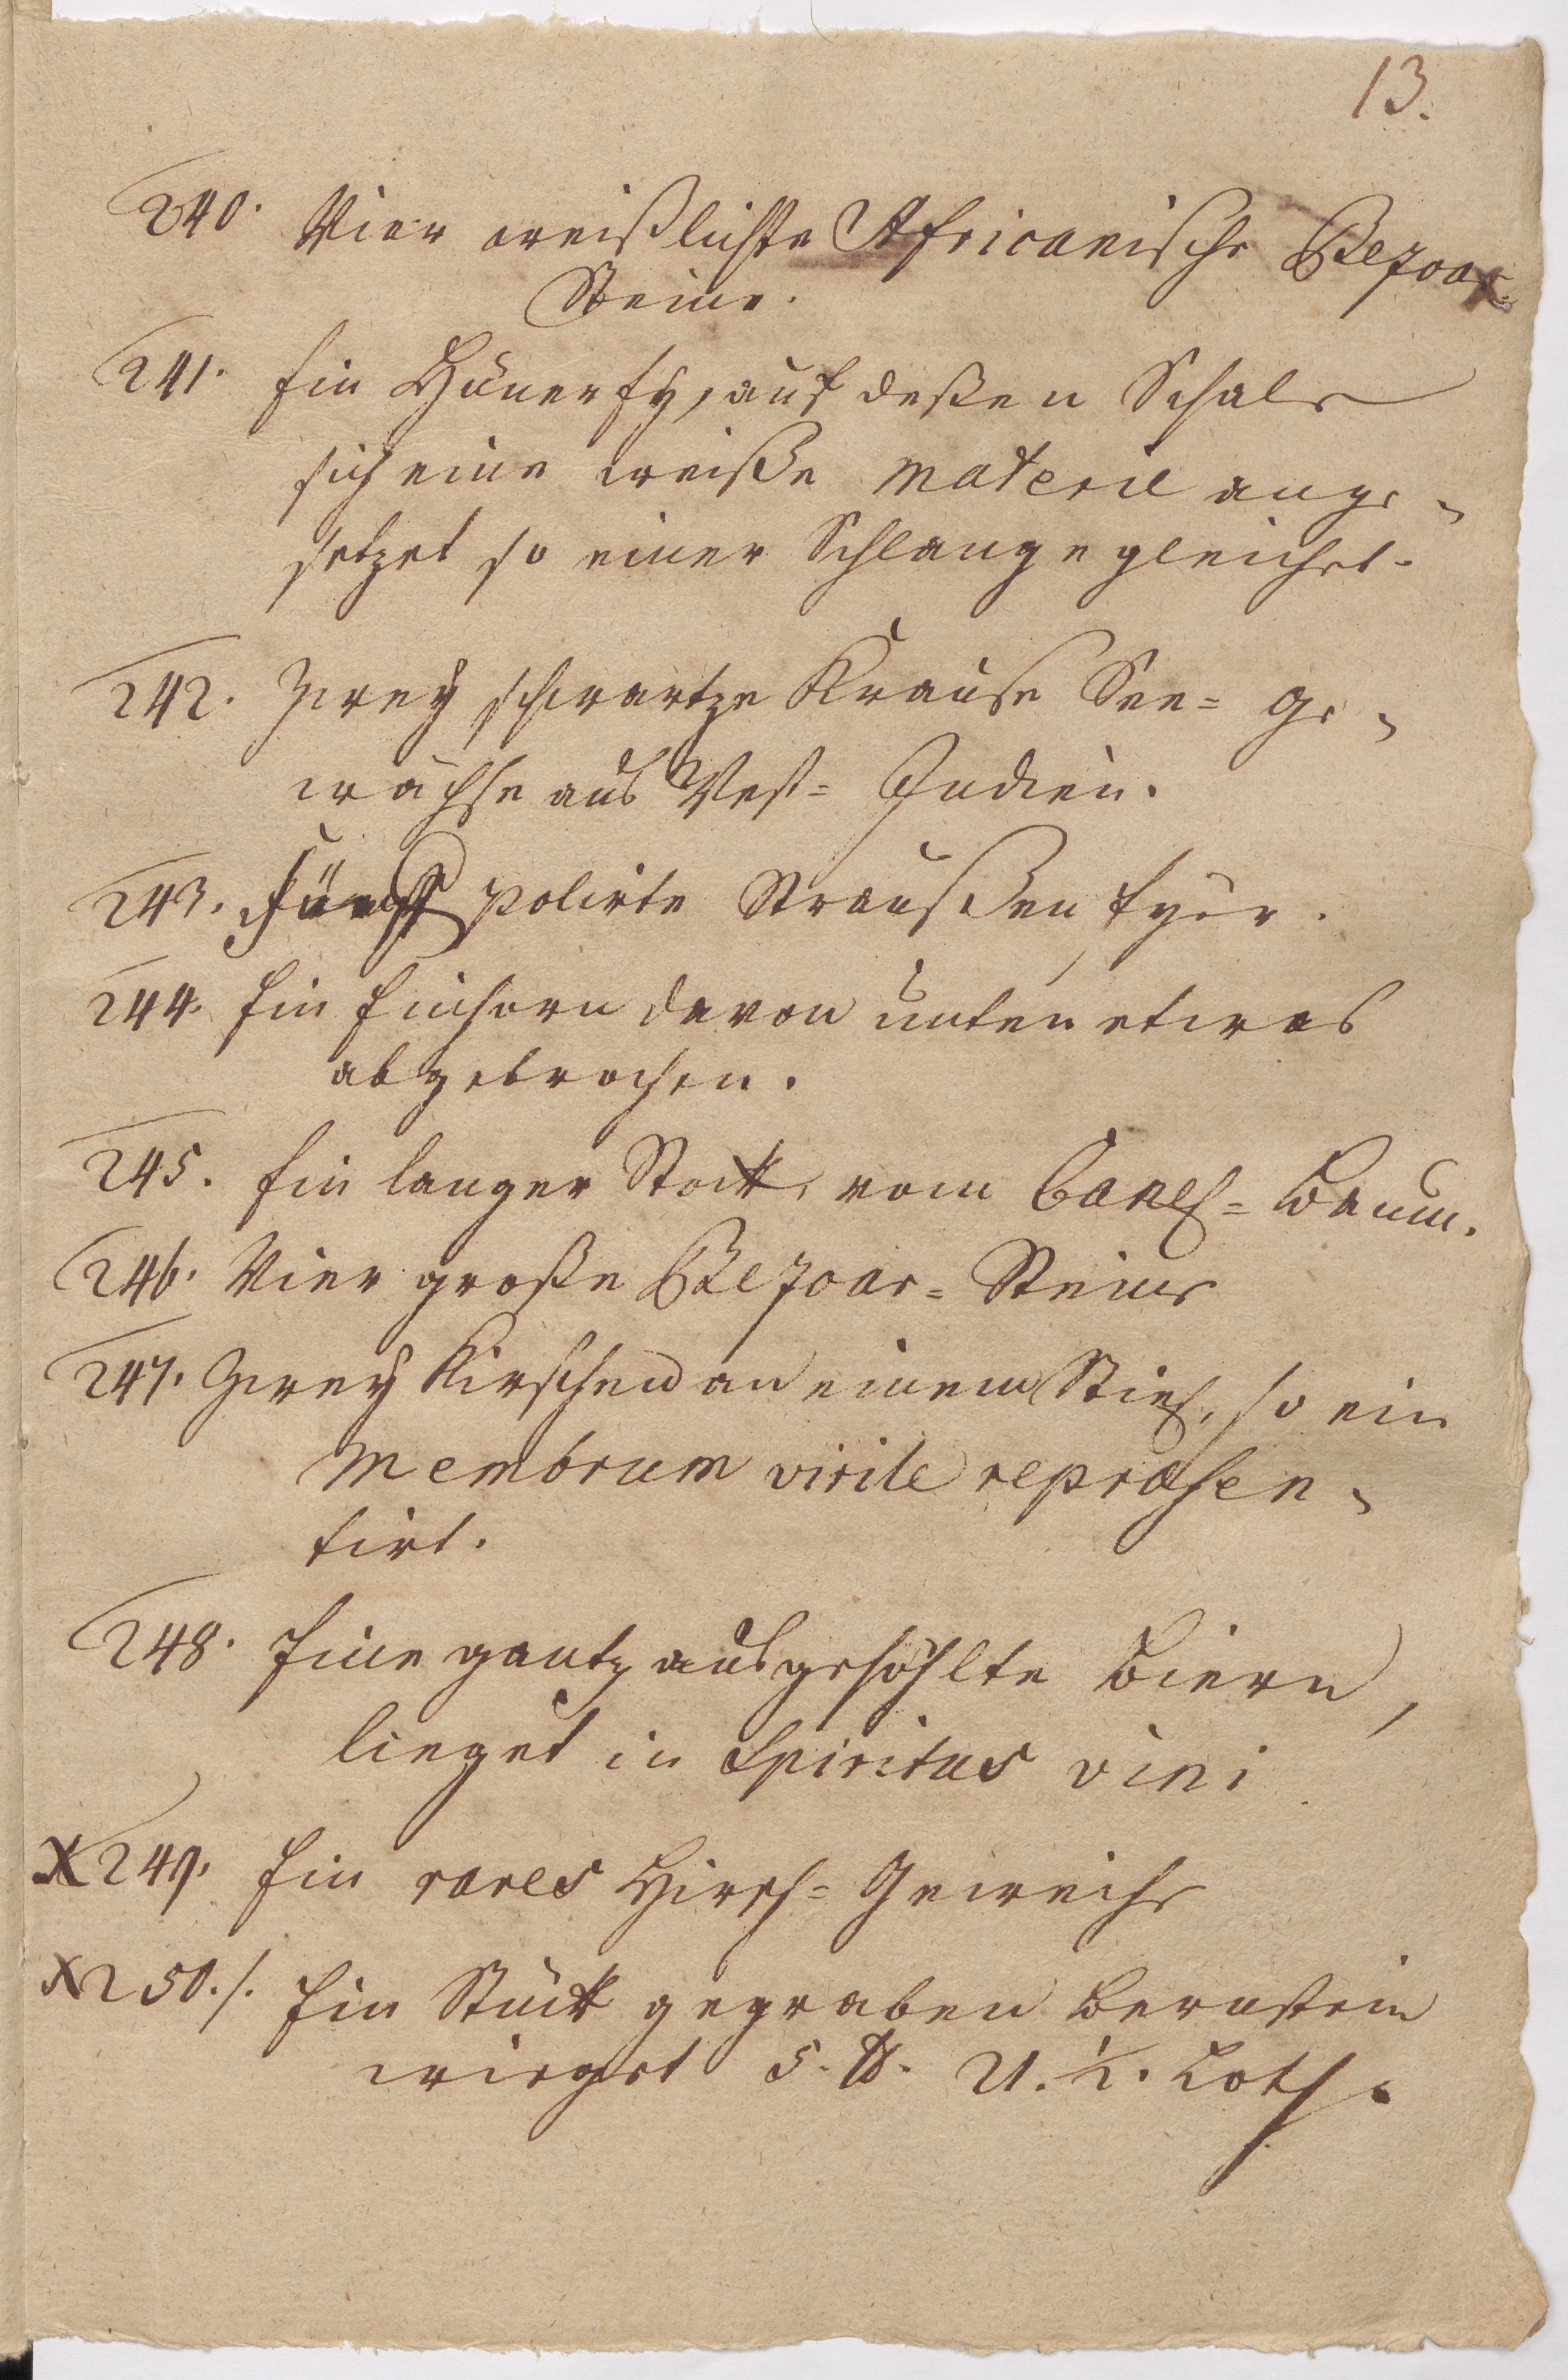 13.
240. Vier weißlichte Africanische Bezoar-
Steine.
241. Ein Hüner Ey, auf deßen Schale
sich eine weiße materie ange-
setzet so einer Schlange gleichet.
242. Zwey schwartze Krause See= ge-
wächse aus West= Indien.
243. Fünff polirte Straußen Eyer.
244. Ein Einhorn davon unten etwas
abgebrochen.
245. Ein langer Stock, vom Canel= Baum.
246. Vier große Bezoar= Steine
247. Zwey Kirschen an einem Stiel, so ein
Membrum virile repræsen-
tirt.
248. Eine gantz ausgehöhlte Biern,
lieget in Spiritus vini
X 249. Ein rares Hirsch= Geweihe
X 250./. Ein Stück gegraben Bernstein
wieget 5. ℔. U. ½. Loth.